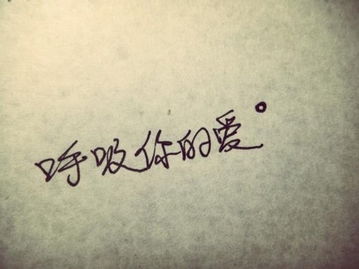 呼吸你的爱。